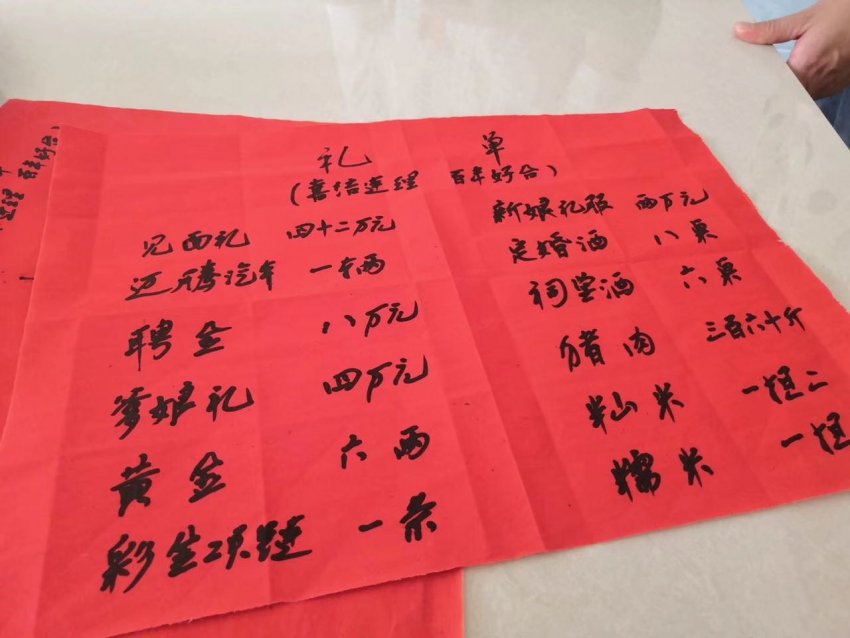 礼 单
(喜结连理 百年好合)
见面礼 四十二万元
迈腾汽车 一车两
聘金 八万元
爹娘礼 四万元
黄金 六两
彩金项链 一条
新娘礼服 两万元
定婚酒 八桌
祠堂酒 六桌
猪肉 三百六十斤
籼米 一担二
糯米 一担
百年好合)